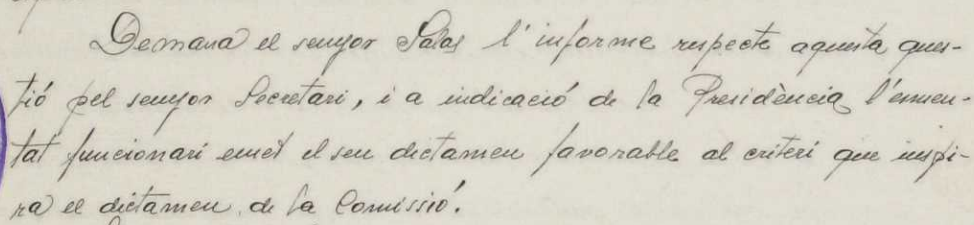 Demana el senyor Salas l'informe respecte aquesta ques-
tió pel senyor Secretari, i a indicació de la Presidència, l'esmen-
tat funcionari emet el seu dictamen favorable al criteri que inspi-
ra el dictamen de la Comissió.